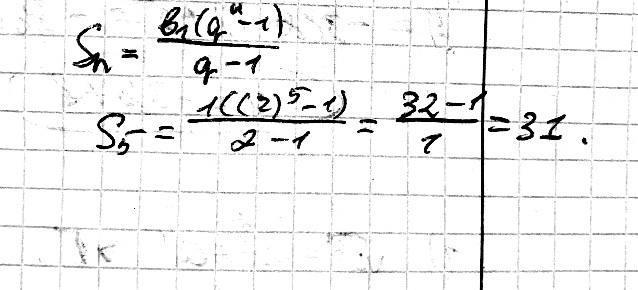 Sn = b₁(qⁿ-1) / q-1
S₅ = 1((2)⁵-1) / 2-1 = 32-1 / 1 = 31.